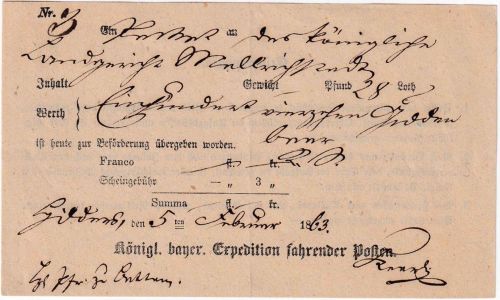 Nr. Ein Packet an das königliche
Landgericht Mellrichstadt
Inhalt Gewicht Pfund 28 Loth
Werth Einhundert vierzehn Gulden
ist heute zur Beförderung übergeben worden.
Franco — fl. — kr.
Scheingebühr — „ 3 „
Summa fl. kr.
Hilders, den 5 ten Februar 1863.
Königl. bayer. Expedition fahrender Posten.